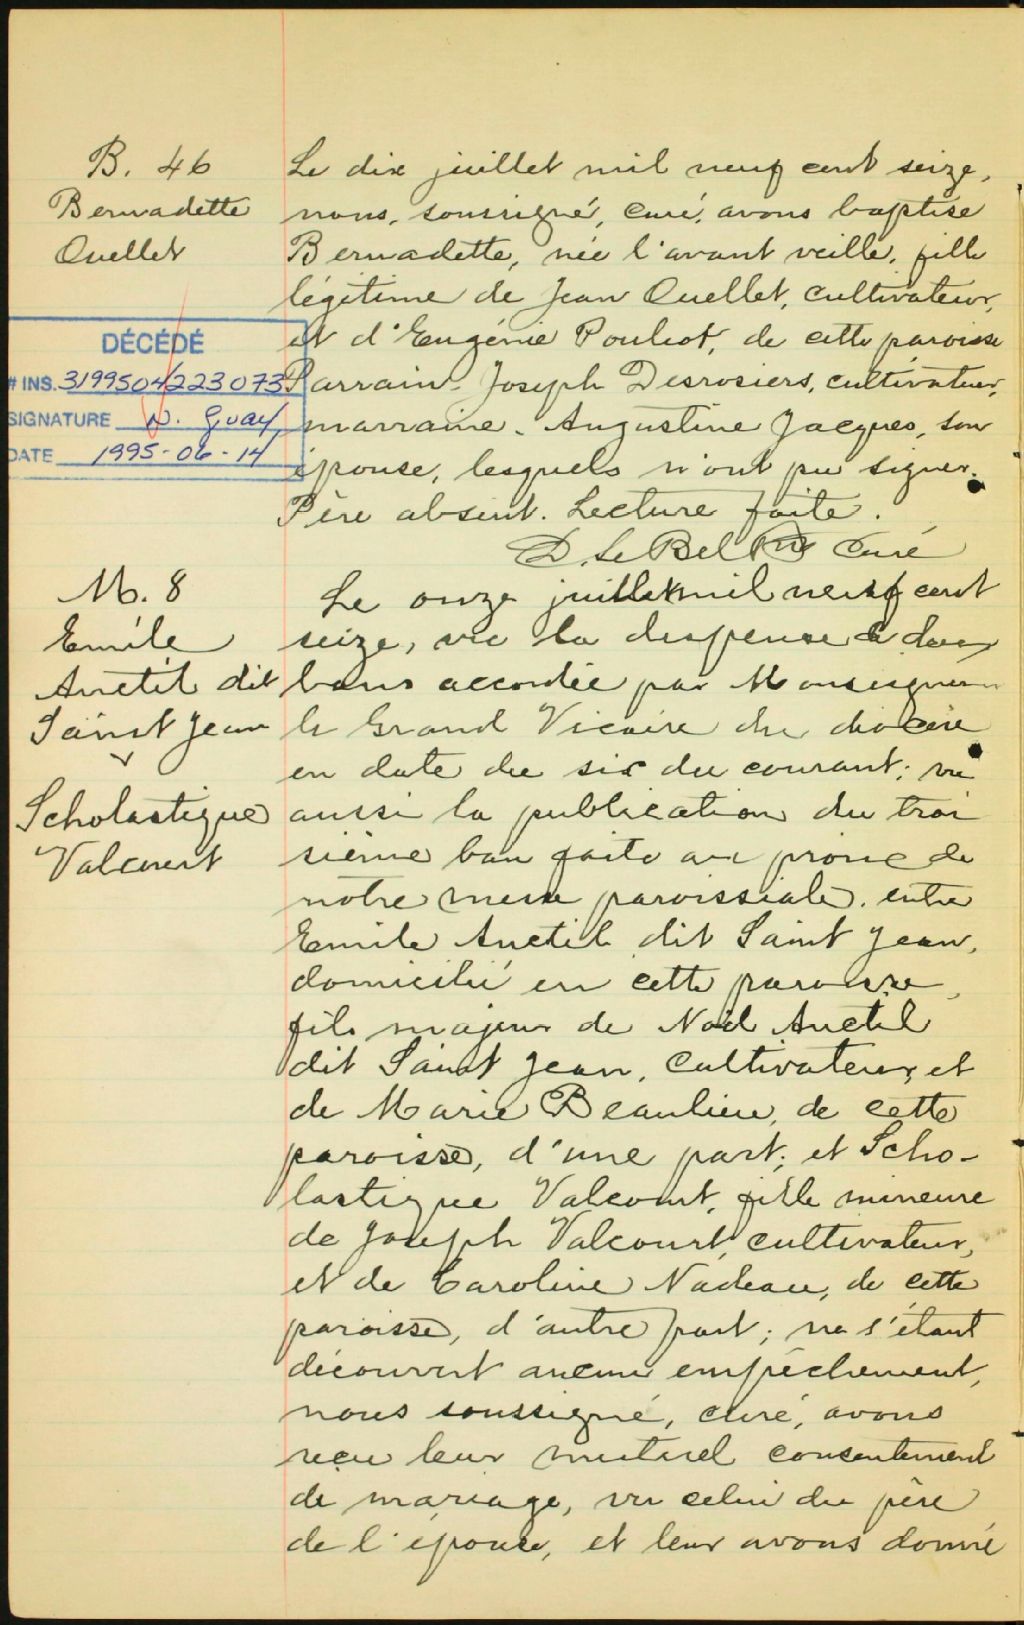 B. 46
Bernadette
Ouellet
Le dix juillet mil neuf cent seize,
nous, soussigné, curé, avons baptisé
Bernadette, née l'avant veille, fille
légitime de Jean Ouellet, cultivateur,
et d'Eugénie Pouliot, de cette paroisse
Parrain. Joseph Desrosiers, cultivateur,
marraine. Augustine Jacques, son
épouse, lesquels n'ont pu signer.
Père absent. Lecture faite.
D. LeBel Ptre Curé
DÉCÉDÉ
# INS. 3199504223073
SIGNATURE N. Guay
DATE 1995-06-14
M. 8
Emile
Anctil dit
Saint Jean
&
Scholastique
Valcourt
Le onze juillet mil neuf cent
seize, vu la dispense de deux
bans accordée par Monseigneur
le Grand Vicaire du diocèse
en date du six du courant; vu
aussi la publication du troi
sième ban faite au prône de
notre messe paroissiale, entre
Emile Anctil dit Saint Jean,
domicilié en cette paroisse,
fils majeur de Noël Anctil
dit Saint Jean, cultivateur, et
de Marie Beaulieu, de cette
paroisse, d'une part; et Scho-
lastique Valcourt, fille mineure
de Joseph Valcourt, cultivateur,
et de Caroline Nadeau, de cette
paroisse, d'autre part; ne s'étant
découvert aucun empêchement,
nous soussigné, curé, avons
reçu leur mutuel consentement
de mariage, vu celui du père
de l'épouse, et leur avons donné